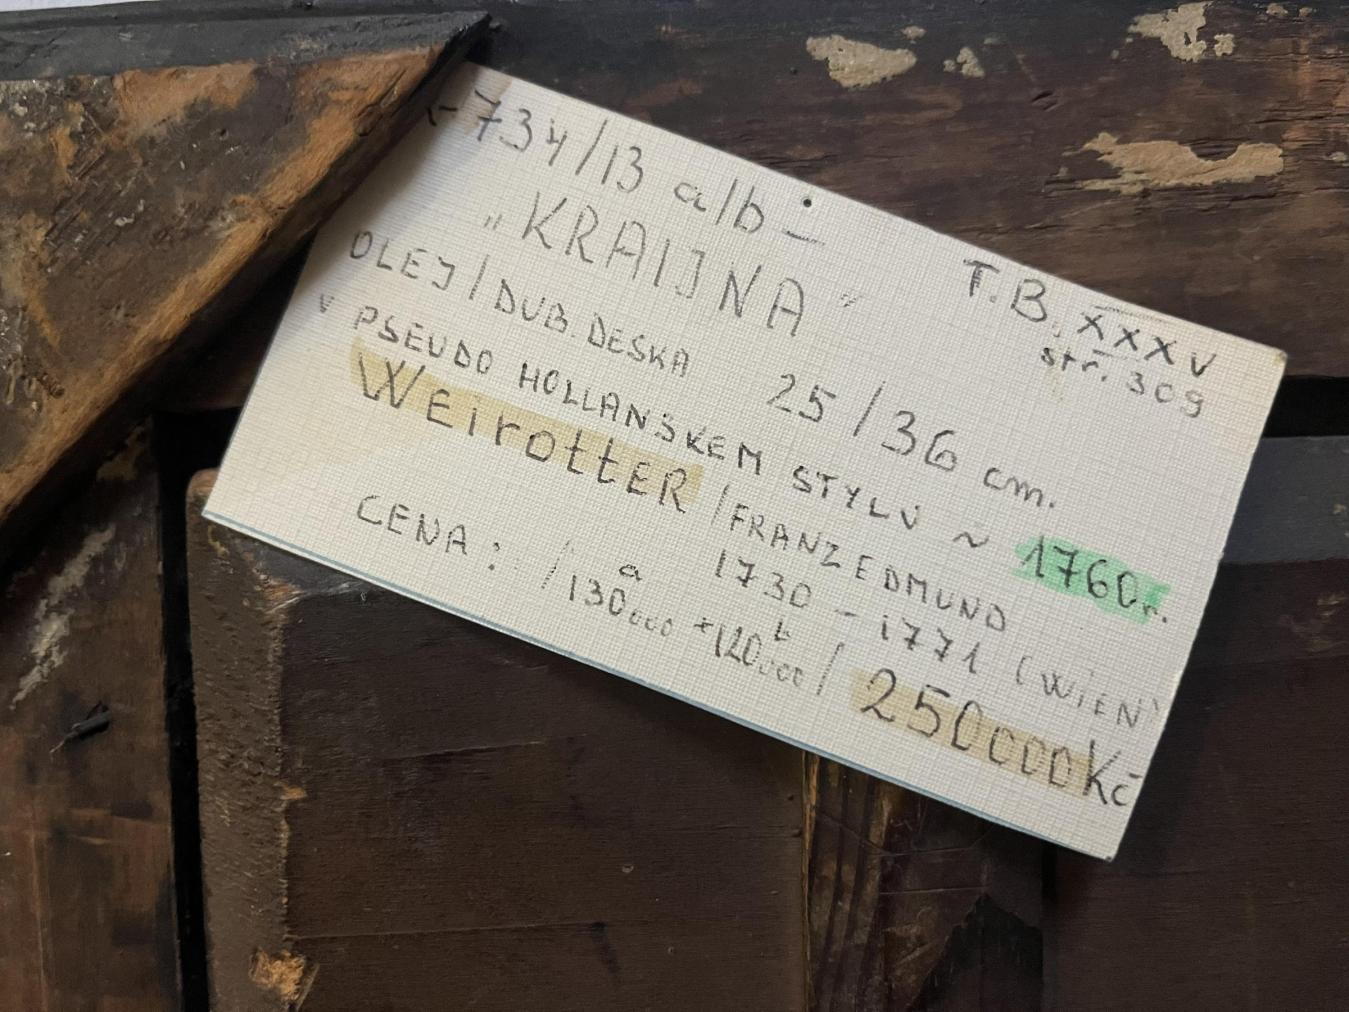 -734/13 a/b -
„KRAIJNA"
T.B. XXXV
str. 309
OLEJ/DUB. DESKA 25/36 cm.
V PSEUDO HOLLANSKEM STYLU ~ 1760r.
WEirottER /FRANZ EDMUND
1730 - 1771 (WIEN)
CENA: /130000 + 120000/ 250000 Kč
a b